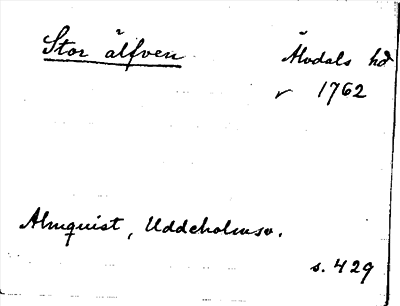 Stor älfven
Älvdals hd
r 1762
Almquist, Uddeholmsv.
s. 429